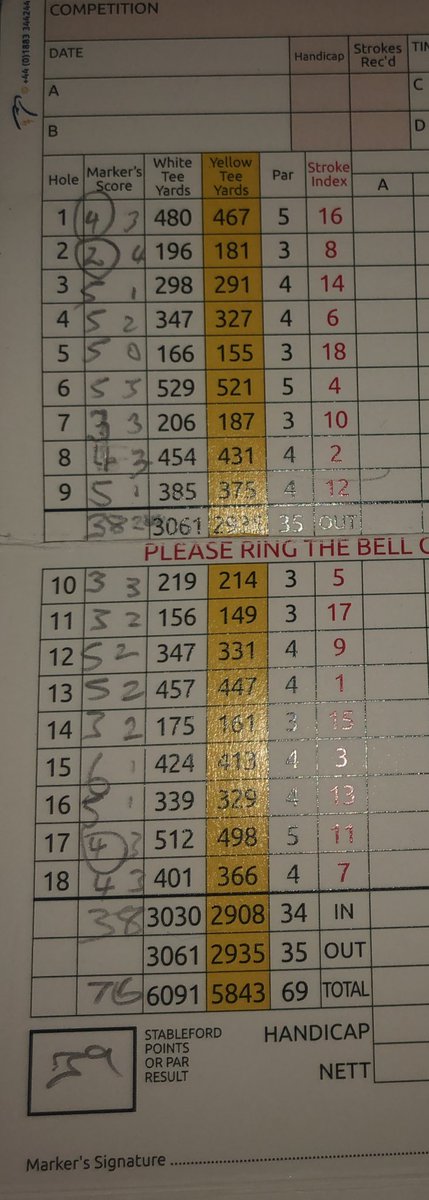 +44 (0)1883 344244
COMPETITION
DATE Handicap Strokes Rec'd
A C
B D
Hole Marker's Score White Tee Yards Yellow Tee Yards Par Stroke Index A
1 4 3 480 467 5 16
2 2 4 196 181 3 8
3 5 1 298 291 4 14
4 5 2 347 327 4 6
5 5 0 166 155 3 18
6 5 3 529 521 5 4
7 3 3 206 187 3 10
8 4 3 454 431 4 2
9 5 1 385 375 4 12
38 3061 2935 35 OUT
PLEASE RING THE BELL
10 3 3 219 214 3 5
11 3 2 156 149 3 17
12 5 2 347 331 4 9
13 5 2 457 447 4 1
14 3 2 175 161 3 15
15 6 1 424 413 4 3
16 5 1 339 329 4 13
17 4 3 512 498 5 11
18 4 3 401 366 4 7
38 3030 2908 34 IN
3061 2935 35 OUT
76 6091 5843 69 TOTAL
39 STABLEFORD POINTS OR PAR RESULT HANDICAP
NETT
Marker's Signature